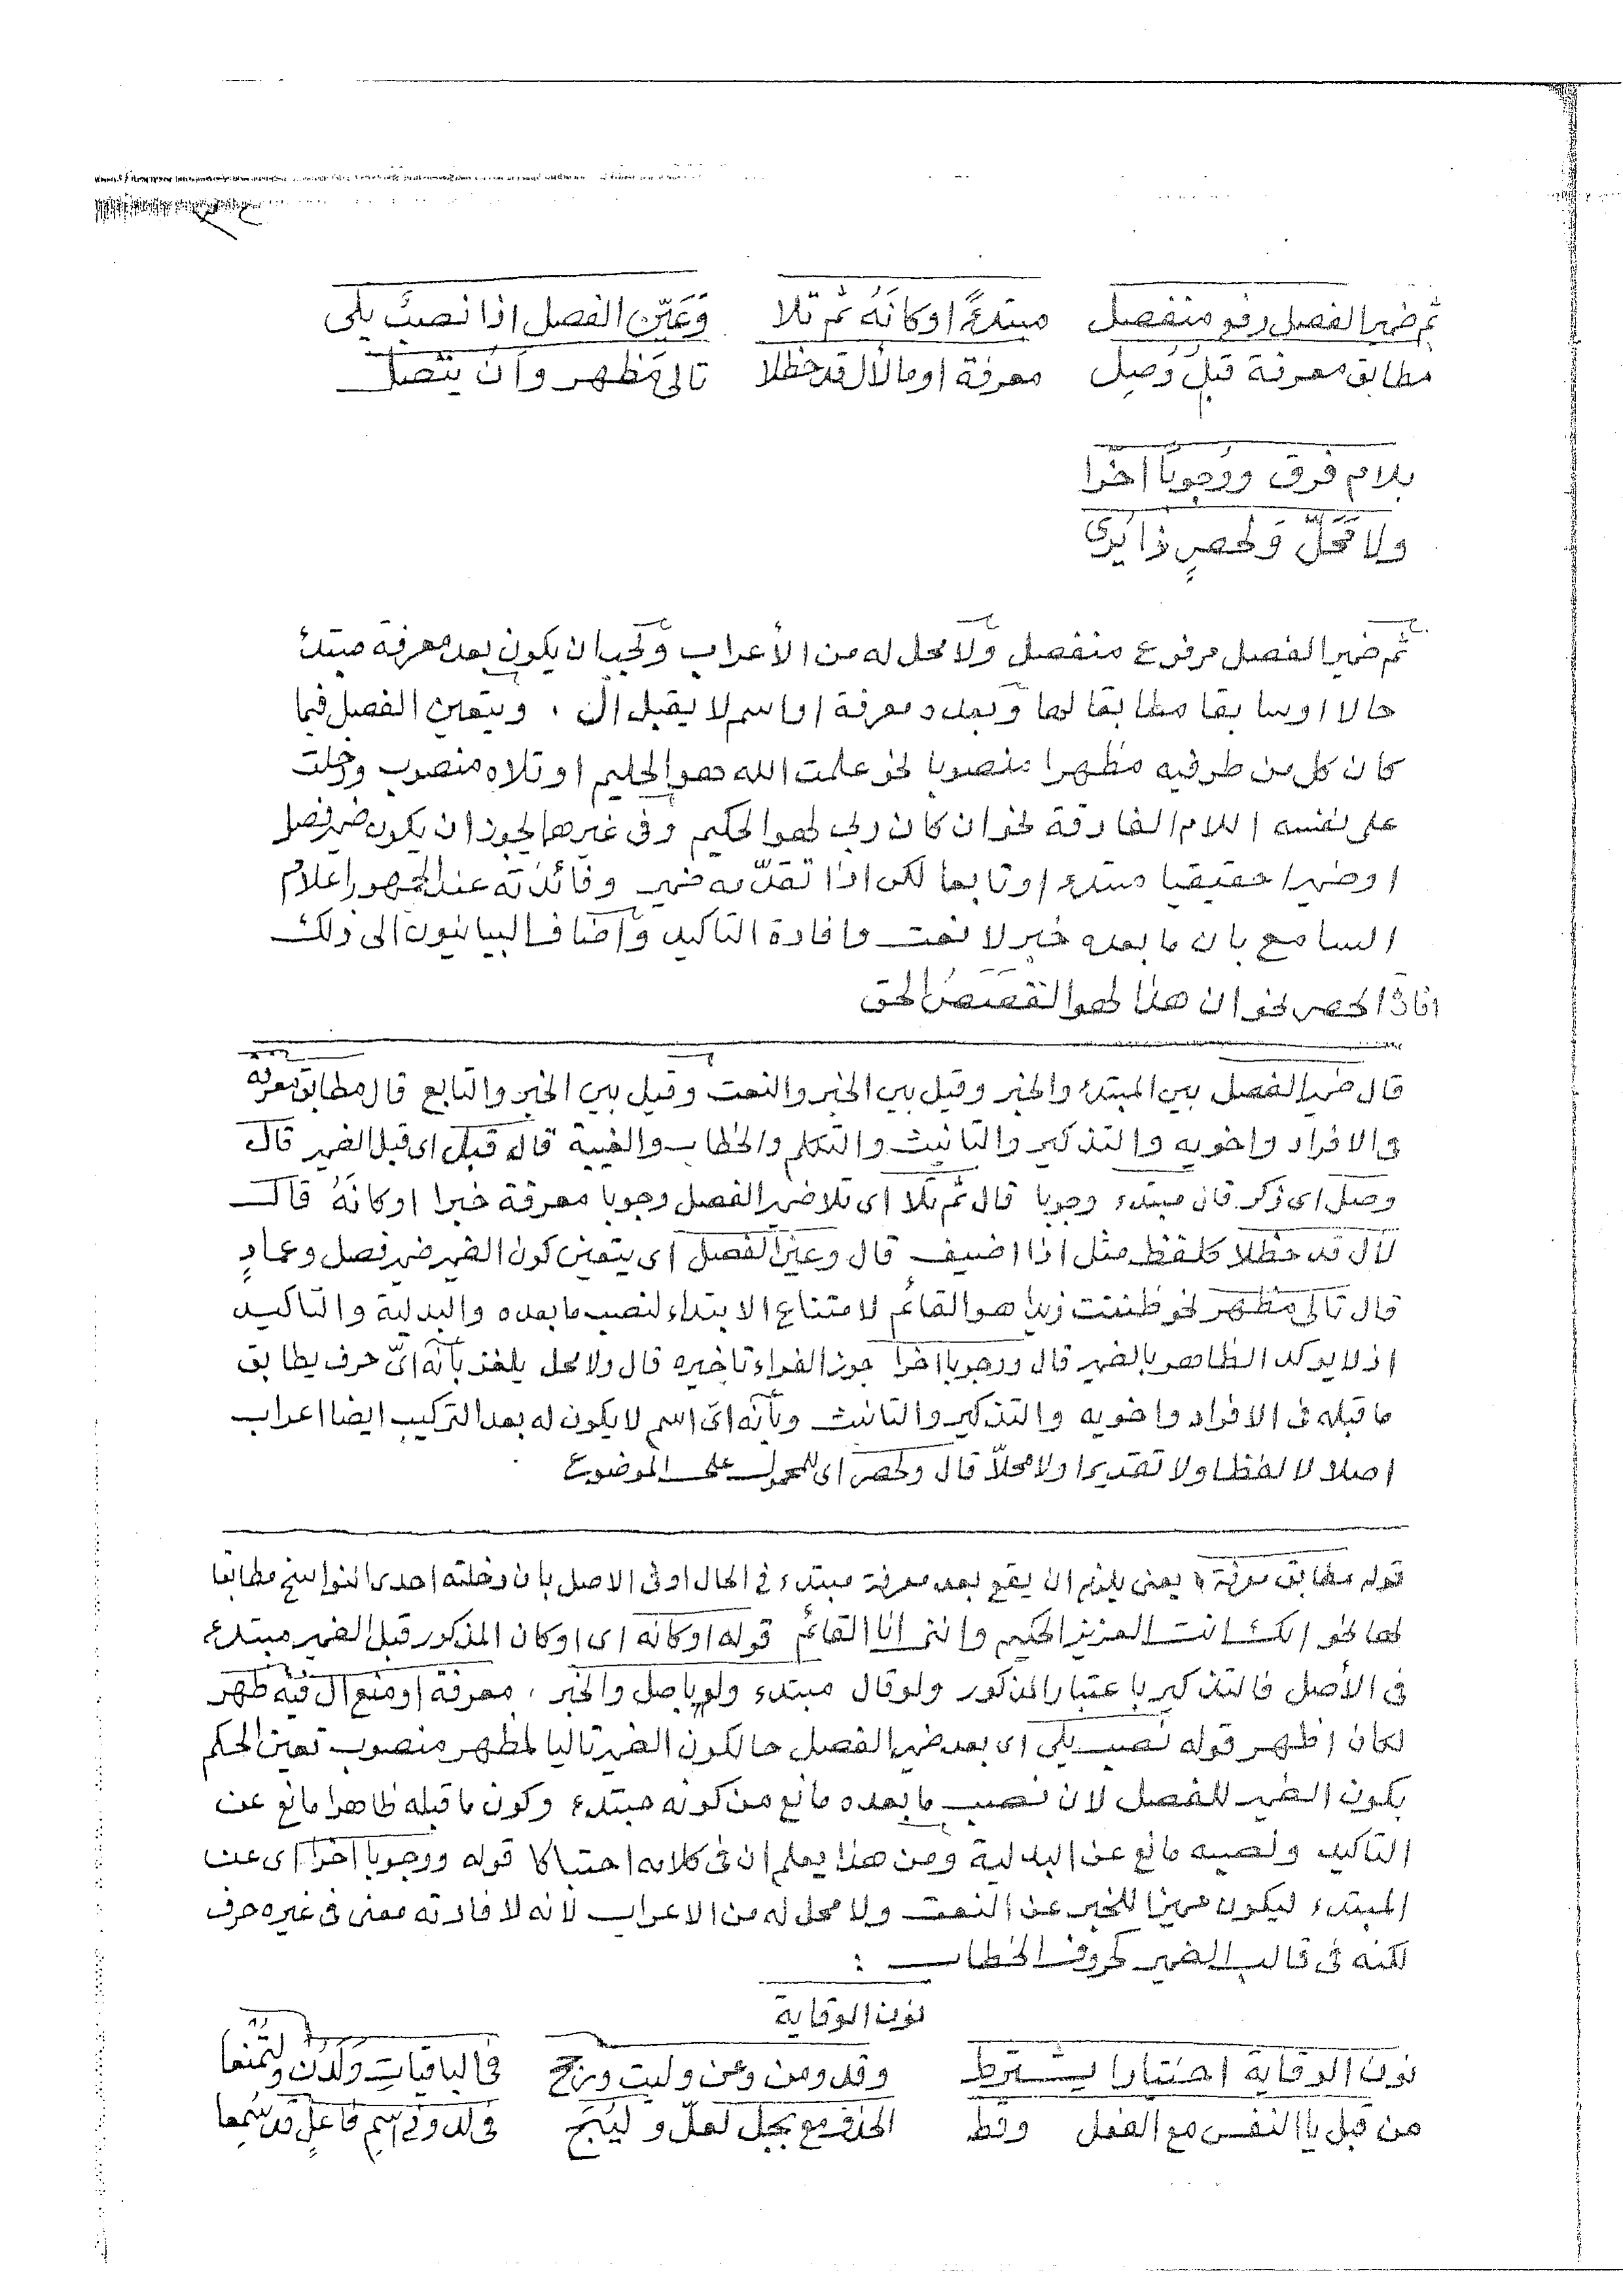 ثم ضمير الفصل رفع منفصل   مبتدءً او كانَهُ ثم تلا   وَعَيِّن الفصل اذا نصبٌ يلى
مطابق معرفة قبلُ وُصِل   معرفة او مالأل قد حظلا   تالىَ مُظهر وان يتّصل
بلام فرق ووجوبًا اخّرا
ولا مَحَلَّ وَلحصرٍ ذا يُرى
ثم ضمير الفصل مرفوع منفصل ولا محل له من الأعراب ويجب ان يكون بعد معرفة مبتدء
حالا او سابقا مطابقا لها وبعده معرفة او اسم لا يقبل ال ، ويتعين الفصل فيما
كان كل من طرفيه مظهرا منصوبا نحو علمت الله هو الحليم او تلاه منصوب ودخلت
على نفسه اللام الفارقة نحو ان كان ربى لهو الحكيم وفى غيرهما يجوز ان يكون ضمير فصل
او ضميرا حقيقيا مبتدء او تابعا لكن اذا تقدّمه ضمير وفائدته عند الجمهور اعلام
السامع بان ما بعده خبر لا نعت وافادة التاكيد واضاف البيانيون الى ذلك
افادة الحصر نحو ان هذا لهو القصص الحق
قال ضمير الفصل بين المبتدء والخبر وقيل بين الخبر والنعت وقيل بين الخبر والتابع قال مطابق معرفه
فى الافراد واخويه والتذكير والتانيث والتكلم والخطاب والغيبة قال قبل اى قبل الضمير قال
وصل اى ذكر قال مبتدء وجوبا قال ثم تلا اى تلا ضمير الفصل وجوبا معرفة خبرا او كانهُ قال
لأل قد حظلا كلفظ مثل اذا اضيف قال وعين الفصل اى يتعين كون الضمير ضمير فصل وعمادٍ
قال تالى مظهر نحو ظننت زيدا هو القائم لامتناع الابتداء لنصب ما بعده والبدلية والتاكيد
اذ لا يوكد الظاهر بالضمير قال ووجوبا اخرا جوز الفراء تاخيره قال ولا محل يلغز بأنه اىّ حرف يطابق
ما قبله فى الافراد واخويه والتذكير والتانيث وبأنه اى اسم لا يكون له بعد التركيب ايضا اعراب
اصلا لا لفظا ولا تقديرا ولا محلاّ قال ولحصر اى للمحمول على الموضوع
قوله مطابق معرفة يعنى يلزم ان يقع بعد معرفة مبتدء فى الحال او فى الاصل بان دخلته احدى النواسخ مطابقا
لها نحو انك انت العزيز الحكيم واننى انا القائم قوله او كانه اى او كان المذكور قبل الضمير مبتدء
فى الأصل فالتذكير باعتبار المذكور ولو قال مبتدء ولو باصل والخبر ، معرفة او منع ال فيه ظهر
لكان اظهر قوله نصب يلى اى بعد ضمير الفصل حالكون الضمير تاليا لمظهر منصوب تعين الحكم
بكون الضمير للفصل لان نصب ما بعده مانع من كونه مبتدء وكون ما قبله ظاهرا مانع عن
التاكيد ونصبه مانع عن البدلية ومن هذا يعلم ان فى كلامه احتباكا قوله ووجوبا اخرا اى عن
المبتدء ليكون مميزا للخبر عن النعت ولا محل له من الاعراب لانه لافادته معنى فى غيره حرف
لكنه فى قالب الضمير كحروف الخطاب :
نون الوقاية
نون الوقاية اختيارا يشترط   وقد ومن وعن وليت ورجح   فى الباقياتِ وَلَدُن
من قبل يا النفس مع الفعل وقط   الحذف مع بجل لعلّ وليُبَح   فى لد وفى اسمِ فاعلٍ قد سُمِعا